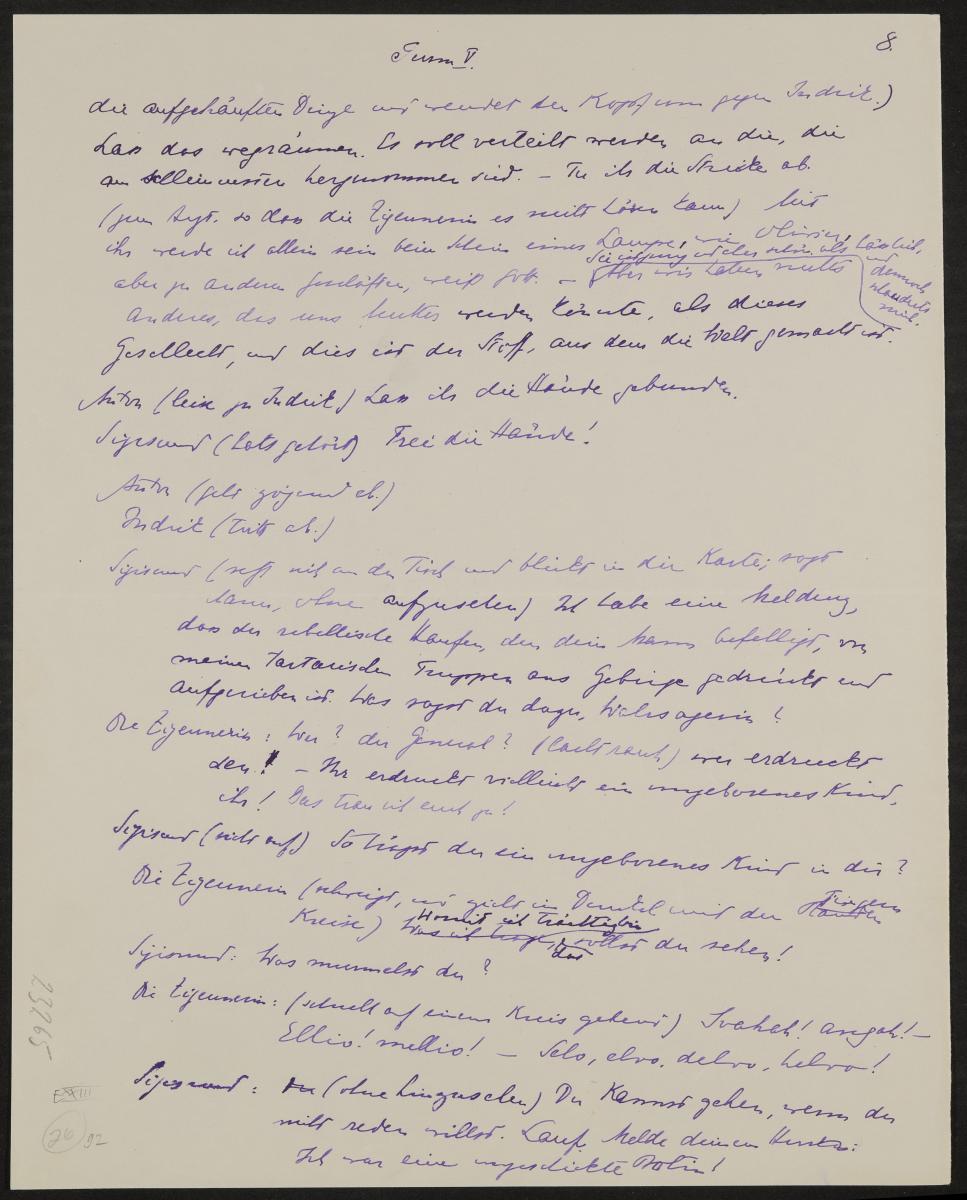 Turm V.
8.
die aufgehäuften Dinge und wendet den Kopf um gegen Indrik.)
Lass das wegräumen. Es soll verteilt werden an die, die
am hergenommen sind. – Tu ihr die Stricke ab.
(zum Arzt. so dass die Zigeunerin es nicht hören kann) Mit
ihr werde ich allein sein beim Schein einer Lampe, wie Olivier,
aber zu anderen Geschäften, weiß Gott. – Aber wir haben nichts
und dennoch schaudert mich.
Anderes, das uns Mutter werden könnte, als dieses
Geschlecht, und dies ist der Stoff, aus dem die Welt gemacht ist.
Anton (leise zu Indrik) Lass ihr die Hände gebunden.
Sigismund (hats gehört) Frei die Hände!
Anton (geht zögernd ab.)
Indrik (tritt ab.)
Sigismund (setzt sich an den Tisch und blickt in die Karte; sagt
dann, ohne aufzusehen) Ich habe eine Meldung,
dass der rebellische Haufen, den dein Mann befelligt, von
meinen tartarischen Truppen ans Gebirge gedrückt und
aufgerieben ist. Was sagst du dazu, Wahrsagerin?
Die Zigeunerin: Wer? der General? (lacht rauh) wer erdruckt
den! – Ihr erdruckt vielleicht ein ungeborenes Kind,
ihr! Das trau ich euch zu!
Sigismund (sieht auf) So trägst du ein ungeborenes Kind in dir?
Die Zigeunerin (schweigt, und zieht im Dunkel mit den Fingern
Kreise) Womit ich trächtig bin
Was ich trage, das sollst du sehen!
Sigismund: Was murmelst du?
Die Zigeunerin: (schnell auf einem Kreis gehend) Svahah! angah! –
Ellio! mellio! – Selo, elvo, delvo, helvo!
Sigismund: (ohne hinzusehen) Du kannst gehen, wenn du
nicht reden willst. Lauf. Melde deinem Herrn:
Ich war eine ungeschickte Botin!
23265
EXXIII
26
92